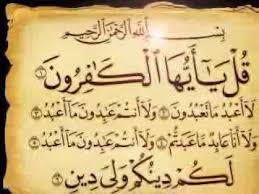 بِسْمِ اللَّهِ الرَّحْمَٰنِ الرَّحِيمِ
قُلْ يَٰٓأَيُّهَا ٱلْكَٰفِرُونَ ١
لَآ أَعْبُدُ مَا تَعْبُدُونَ ٢ وَلَآ أَنتُمْ عَٰبِدُونَ مَآ أَعْبُدُ ٣
وَلَآ أَنَا۠ عَابِدٌ مَّا عَبَدتُّمْ ٤ وَلَآ أَنتُمْ عَٰبِدُونَ مَآ أَعْبُدُ ٥
لَكُمْ دِينُكُمْ وَلِيَ دِينِ ٦